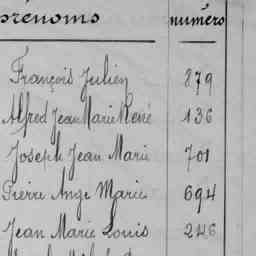 prénoms numéro
François Julien 879
Alfred Jean Marie René 136
Joseph Jean Marie 701
Pierre Ange Marie 694
Jean Marie Louis 246